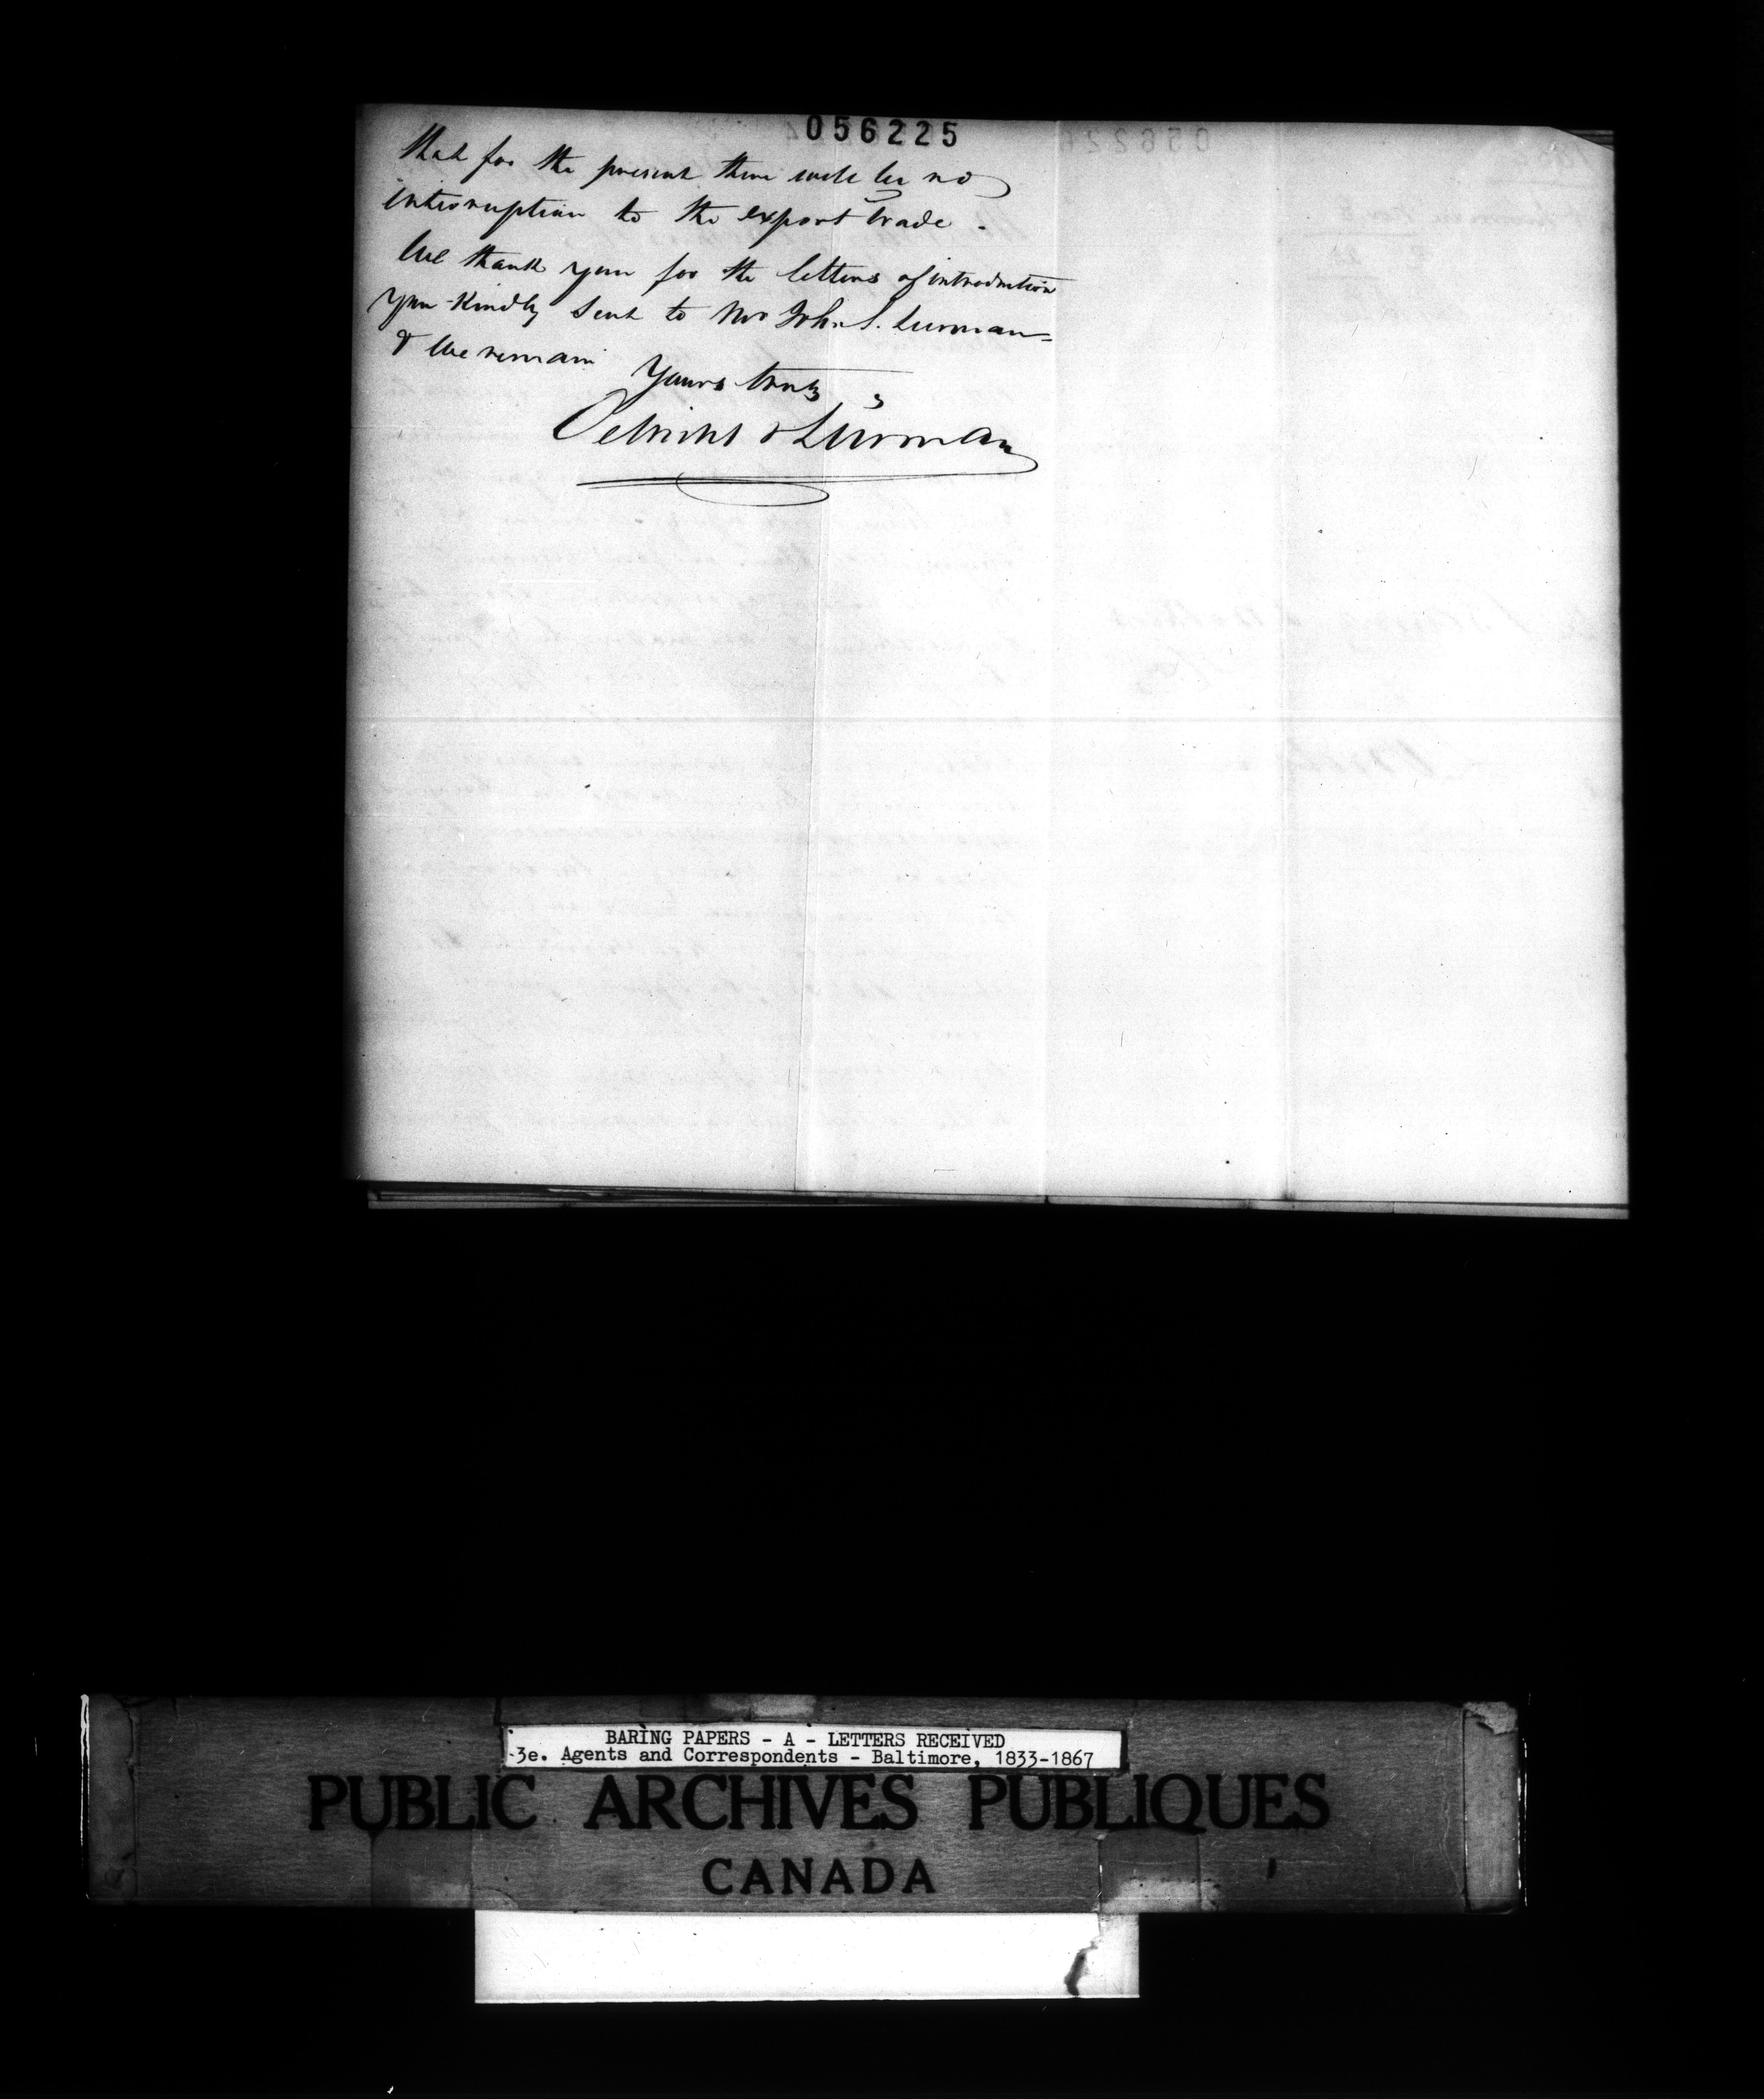 056225
that for the present there will be no
interruption to the export trade.
We thank you for the letters of introduction
you kindly sent to Mr John S. Lurman
& We remain
Yours truly
Oelrichs & Lürman
BARING PAPERS - A - LETTERS RECEIVED
3e. Agents and Correspondents - Baltimore, 1833-1867
PUBLIC ARCHIVES PUBLIQUES
CANADA